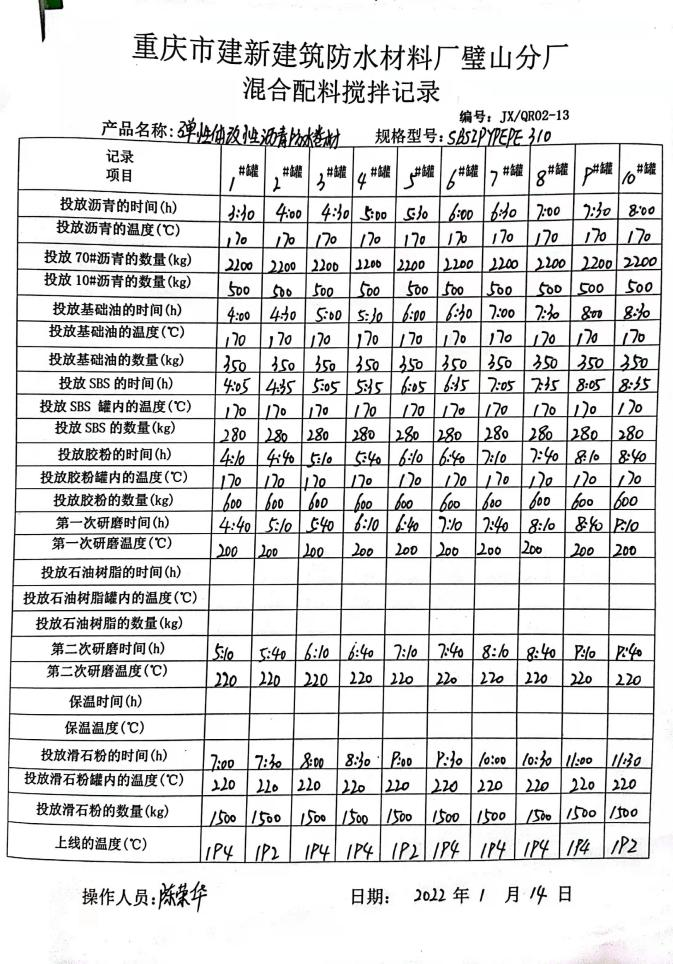 重庆市建新建筑防水材料厂璧山分厂
混合配料搅拌记录
编号: JX/QR02-13
产品名称: 弹性体改性沥青防水卷材 规格型号: SBSIPYPEPE 310
记录项目 1#罐 2#罐 3#罐 4#罐 5#罐 6#罐 7#罐 8#罐 9#罐 10#罐
投放沥青的时间(h) 3:30 4:00 4:30 5:00 5:30 6:00 6:30 7:00 7:30 8:00
投放沥青的温度(℃) 170 170 170 170 170 170 170 170 170 170
投放 70#沥青的数量(kg) 2200 2200 2200 2200 2200 2200 2200 2200 2200 2200
投放 10#沥青的数量(kg) 500 500 500 500 500 500 500 500 500 500
投放基础油的时间(h) 4:00 4:30 5:00 5:30 6:00 6:30 7:00 7:30 8:00 8:30
投放基础油的温度(℃) 170 170 170 170 170 170 170 170 170 170
投放基础油的数量(kg) 350 350 350 350 350 350 350 350 350 350
投放 SBS 的时间(h) 4:05 4:35 5:05 5:35 6:05 6:35 7:05 7:35 8:05 8:35
投放 SBS 罐内的温度(℃) 170 170 170 170 170 170 170 170 170 170
投放 SBS 的数量(kg) 280 280 280 280 280 280 280 280 280 280
投放胶粉的时间(h) 4:10 4:40 5:10 5:40 6:10 6:40 7:10 7:40 8:10 8:40
投放胶粉罐内的温度(℃) 170 170 170 170 170 170 170 170 170 170
投放胶粉的数量(kg) 600 600 600 600 600 600 600 600 600 600
第一次研磨时间(h) 4:40 5:10 5:40 6:10 6:40 7:10 7:40 8:10 8:40 9:10
第一次研磨温度(℃) 200 200 200 200 200 200 200 200 200 200
投放石油树脂的时间(h)
投放石油树脂罐内的温度(℃)
投放石油树脂的数量(kg)
第二次研磨时间(h) 5:10 5:40 6:10 6:40 7:10 7:40 8:10 8:40 9:10 9:40
第二次研磨温度(℃) 220 220 220 220 220 220 220 220 220 220
保温时间(h)
保温温度(℃)
投放滑石粉的时间(h) 7:00 7:30 8:00 8:30 9:00 9:30 10:00 10:30 11:00 11:30
投放滑石粉罐内的温度(℃) 220 220 220 220 220 220 220 220 220 220
投放滑石粉的数量(kg) 1500 1500 1500 1500 1500 1500 1500 1500 1500 1500
上线的温度(℃) 194 192 194 194 192 194 194 194 194 192
操作人员: 陈荣华 日期: 2022 年 1 月 14 日